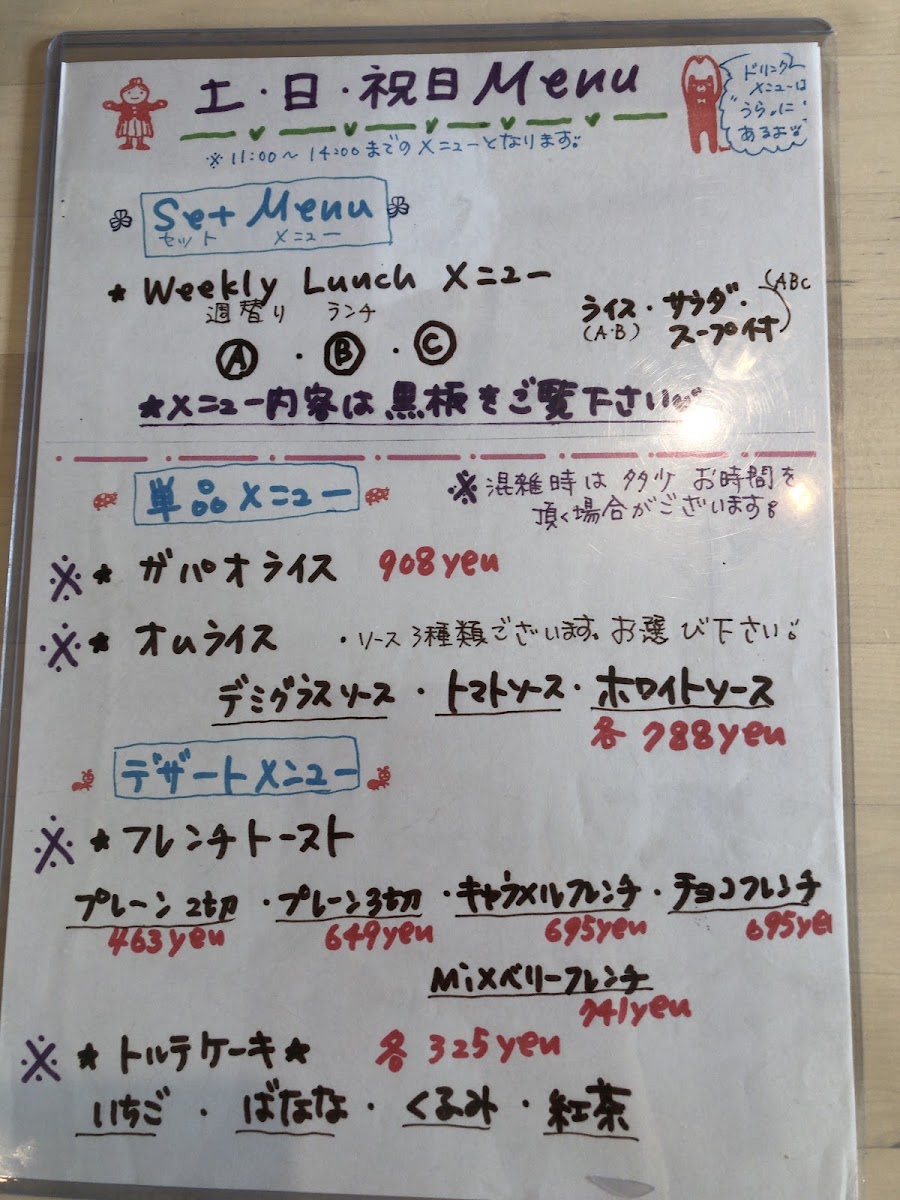 土・日・祝日Menu
ドリンク
メニューは
"うら"に
あるよ
※11:00～14:00までのメニューとなります。
Set Menu
セット メニュー
★ Weekly Lunch メニュー
週替り ランチ
ライス・サラダ・
(A・B)
スープ付
(ABC)
Ⓐ・Ⓑ・Ⓒ
★メニュー内容は黒板をご覧下さい
単品メニュー
※混雑時は多少お時間を
頂く場合がございます。
※★ガパオライス 908yen
※★オムライス ・ソース3種類ございます。お選び下さい。
デミグラスソース・トマトソース・ホワイトソース
各788yen
デザートメニュー
※★フレンチトースト
プレーン2切・プレーン3切・キャラメルフレンチ・チョコフレンチ
463yen 649yen 695yen 695ye
Mixベリーフレンチ
741yen
※★トルテケーキ★ 各325yen
いちご・ばなな・くるみ・紅茶